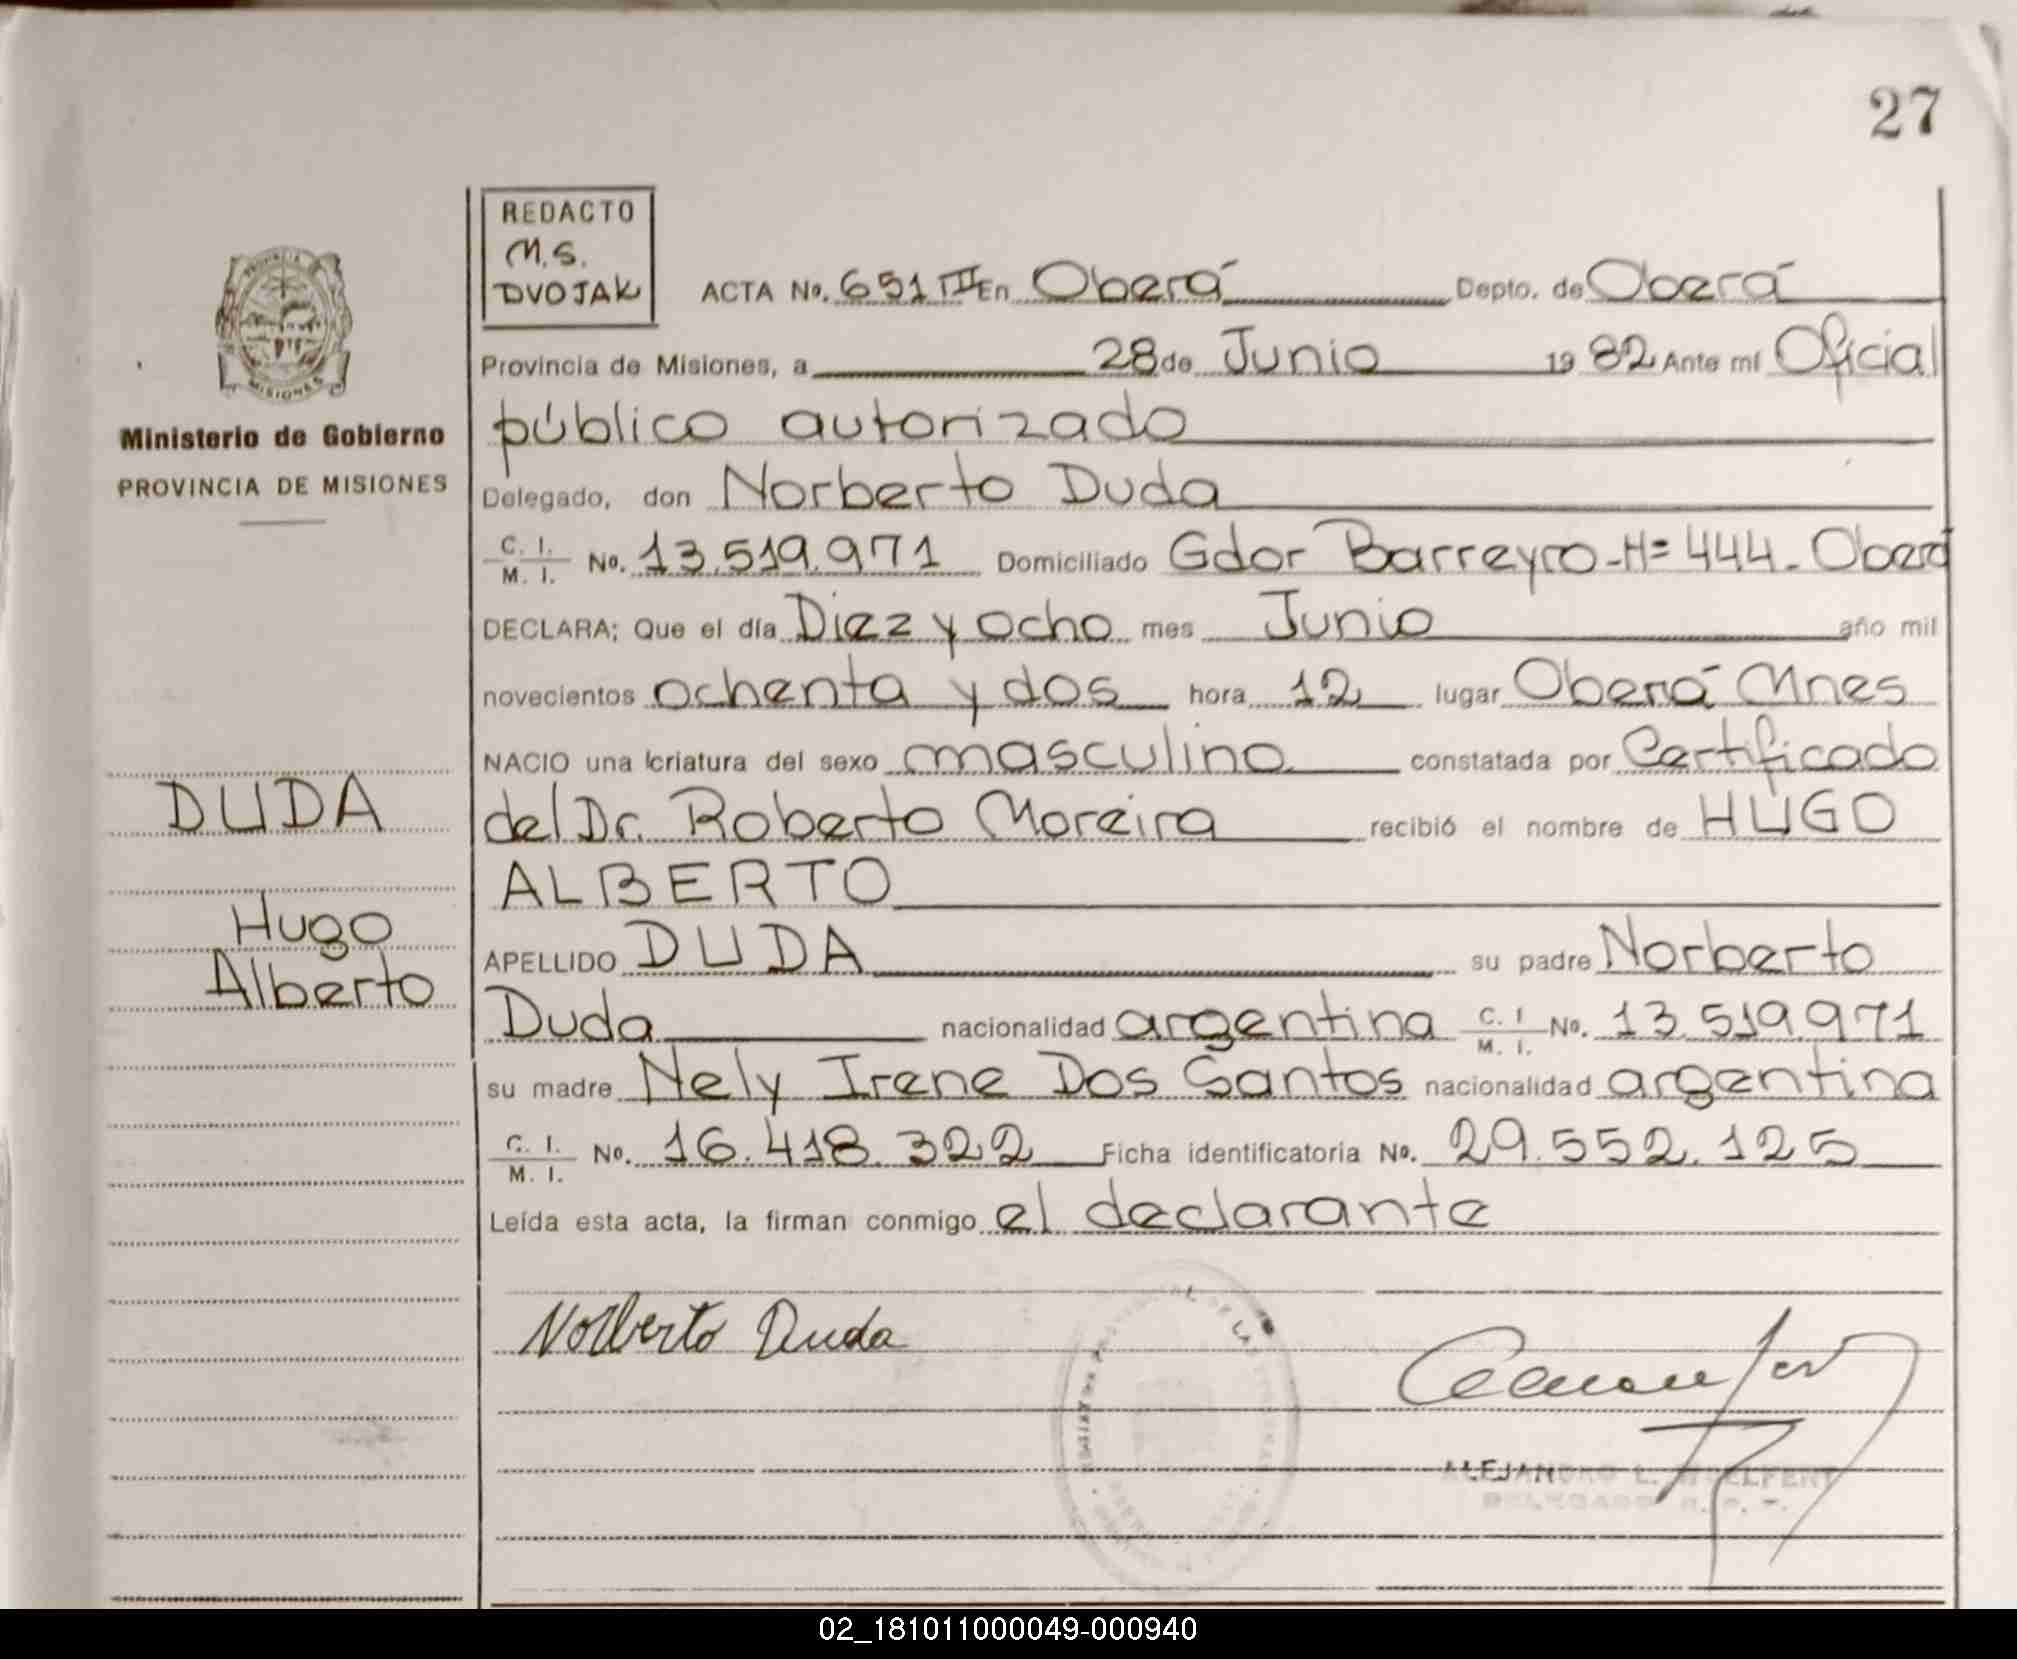 27
REDACTO
M.S.
DVOJAK
ACTA No. 651 III En Oberá Depto. de Oberá
Provincia de Misiones, a 28 de Junio 19 82 Ante mí Oficial
público autorizado
Delegado, don Norberto Duda
C. I. / M. I. No. 13.519.971 Domiciliado Gdor Barreyro - H= 444 - Oberá
DECLARA; Que el día Diez y ocho mes Junio año mil
novecientos ochenta y dos hora 12 lugar Oberá Mnes
NACIO una criatura del sexo masculino constatada por Certificado
del Dr. Roberto Moreira recibió el nombre de HUGO
ALBERTO
APELLIDO DUDA su padre Norberto
Duda nacionalidad argentina C. I / M. I. No. 13.519.971
su madre Nely Irene Dos Santos nacionalidad argentina
C. I. / M. I. No. 16.418.322 Ficha identificatoria No. 29.552.125
Leída esta acta, la firman conmigo el declarante
Norberto Duda
ALEJANDRO L.
DELEGADO
PROVINCIA
MISIONES
Ministerio de Gobierno
PROVINCIA DE MISIONES
DUDA
Hugo
Alberto
02_181011000049-000940